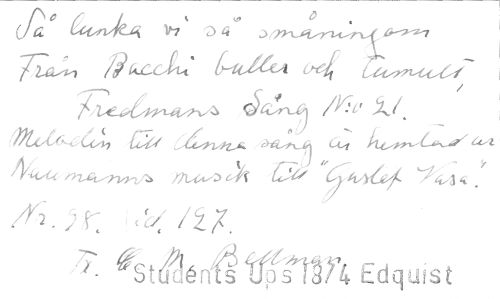 Så lunka vi så småningom
Från Bacchi buller och tumult,
Fredmans Sång N:o 21.
Melodin till denna sång är hemtad ur
Naumanns musik till "Gustaf Vasa".
Nr. 98. sid. 127.
Tr. C. M. Bellman
Students Ups 1874 Edquist